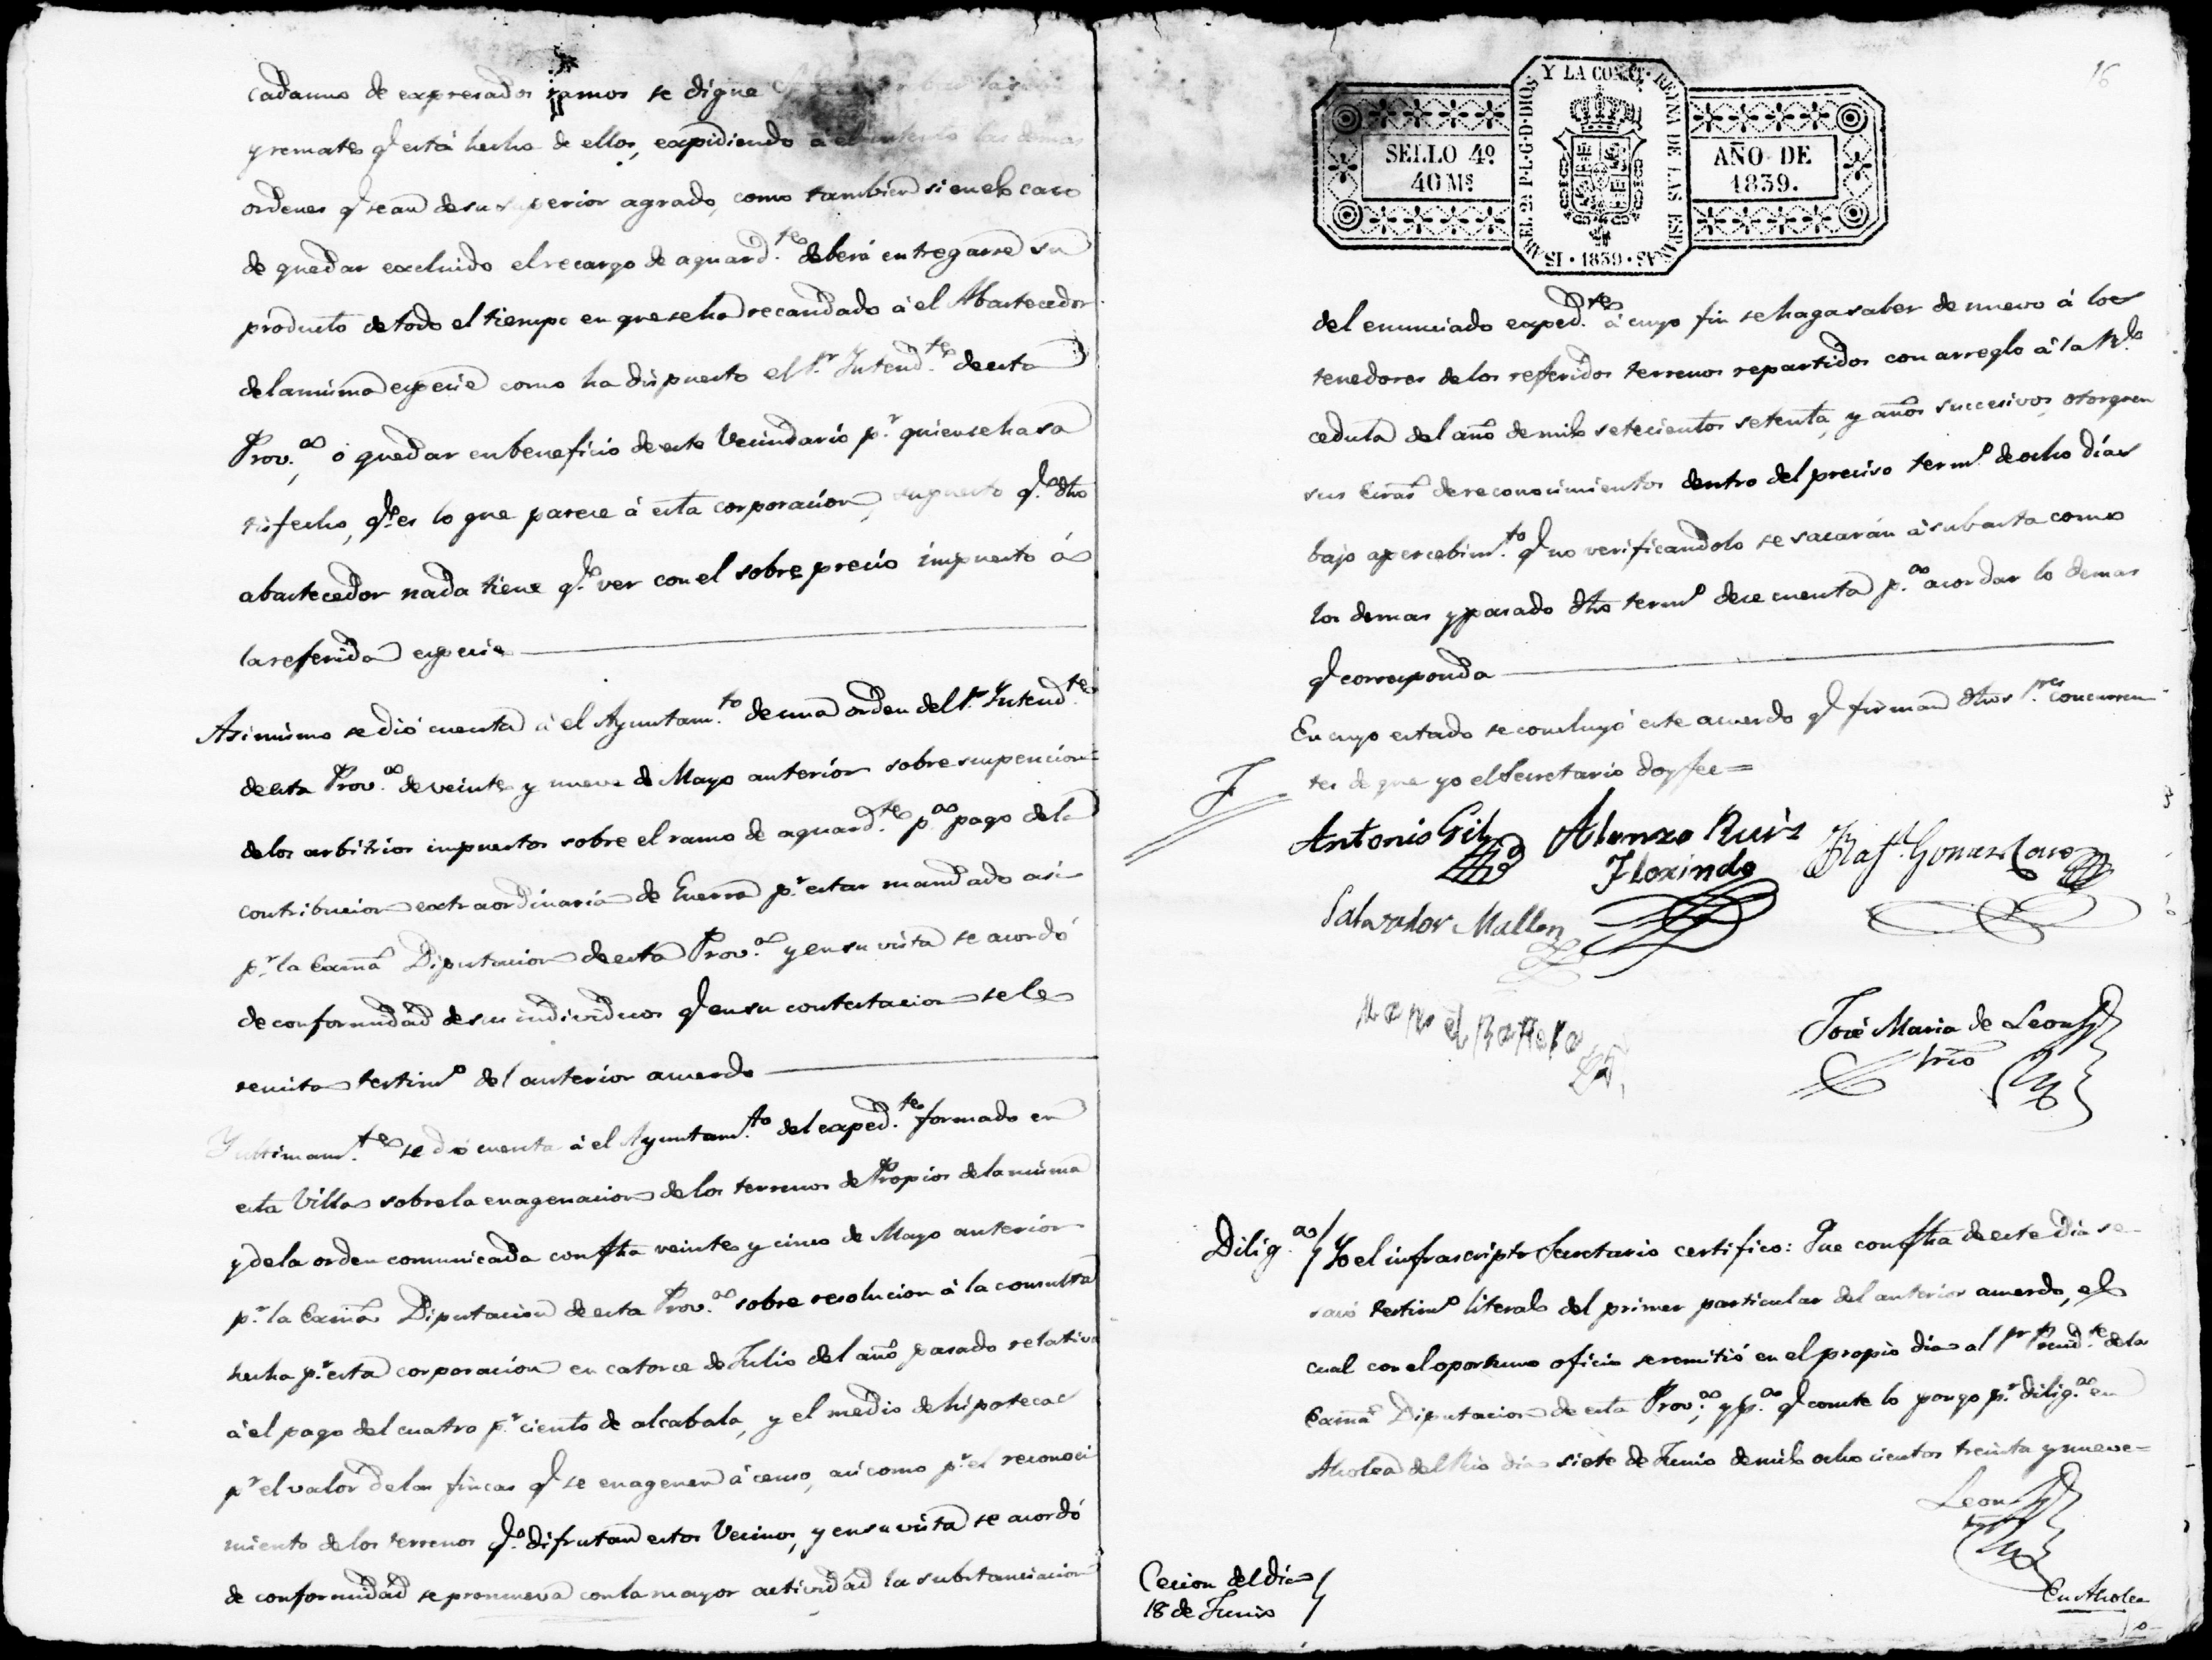 cadauno de expresados ramos se digne
y remates q.e está hecho de ellos, expidiendo á el intento las demas
ordenes q.e sean de su superior agrado, como tambien si en el caso
de quedar excluido el recargo de aguard.te deberá entregarse su
producto de todo el tiempo en que se ha recaudado á el Abastecedor
de la misma especie como ha dispuesto el S.r Intend.te de esta
Prov.a, ó quedar en beneficio de este Vecindario p.r quien se ha sa
tisfecho, q.e es lo que parece á esta corporacion, supuesto q.e dho
abastecedor nada tiene q.e ver con el sobre precio impuesto á
la referida especie
Asimismo se dió cuenta á el Ayuntam.to de una orden del S.r Intend.te
de esta Prov.a de veinte y nueve de Mayo anterior sobre suspencion
de los arbitrios impuestos sobre el ramo de aguard.te p.a pago de la
contribucion extraordinaria de Guerra p.r estar mandado asi
p.r la Exma Diputacion de esta Prov.a y en su vista se acordó
de conformidad de sus individuos q.e en su contestacion se le
remita testim.o del anterior acuerdo
Y ultimam.te se dió cuenta á el Ayuntam.to del exped.te formado en
esta Villa sobre la enagenacion de los terrenos de Propios de la misma
y de la orden comunicada con fha veinte y cinco de Mayo anterior
p.r la Exma Diputacion de esta Prov.a sobre resolucion á la consulta
hecha p.r esta corporacion en catorce de Julio del año pasado relativa
á el pago del cuatro p.r ciento de alcabala, y el medio de hipotecas
p.r el valor de las fincas q.e se enagenen á censo, asi como p.r el reconoci
miento de los terrenos q.e difrutan estos Vecinos, y en su vista se acordó
de conformidad se promueva con la mayor actividad la substanciacion
16
ISABEL 2ª P.L.G.D.DIOS Y LA CONST. REYNA DE LAS ESPAÑAS · 1839 ·
SELLO 4º
40 Ms
AÑO DE
1839.
del enunciado exped.te á cuyo fin se haga saber de nuevo á los
tenedores de los referidos terrenos repartidos con arreglo á la Rl.
cedula del año de mil setecientos setenta, y años succesivos, otorguen
sus escras de reconocimientos dentro del preciso term.o de ocho dias
bajo apercebim.to q.e no verificandolo se sacarán á subasta como
los demas y pasado dho term.o dese cuenta p.a acordar lo demas
q.e corresponda
En cuyo estado se concluyó este acuerdo q.e firman dhos S.res concurren
tes de que yo el Secretario doy fee =
Antonio Gil
Alonzo Ruiz
Florindo
Raf.l Gomez Caro
Salvador Mullen
José Maria de Leon
Srio
Dilig.a Yo el infrascripto Secretario certifico: Que con fha de este dia se
sacó testim.o literal del primer particular del anterior acuerdo, el
cual con el oportuno oficio se remitió en el propio dia al S.r Presid.te de la
Exma Diputacion de esta Prov.a, y p.a q.e conste lo pongo p.r dilig.a en
Alcolea del Rio dia siete de Junio de mil ocho cientos treinta y nueve =
Leon
Cecion del dia
18 de Junio
En Alcolea